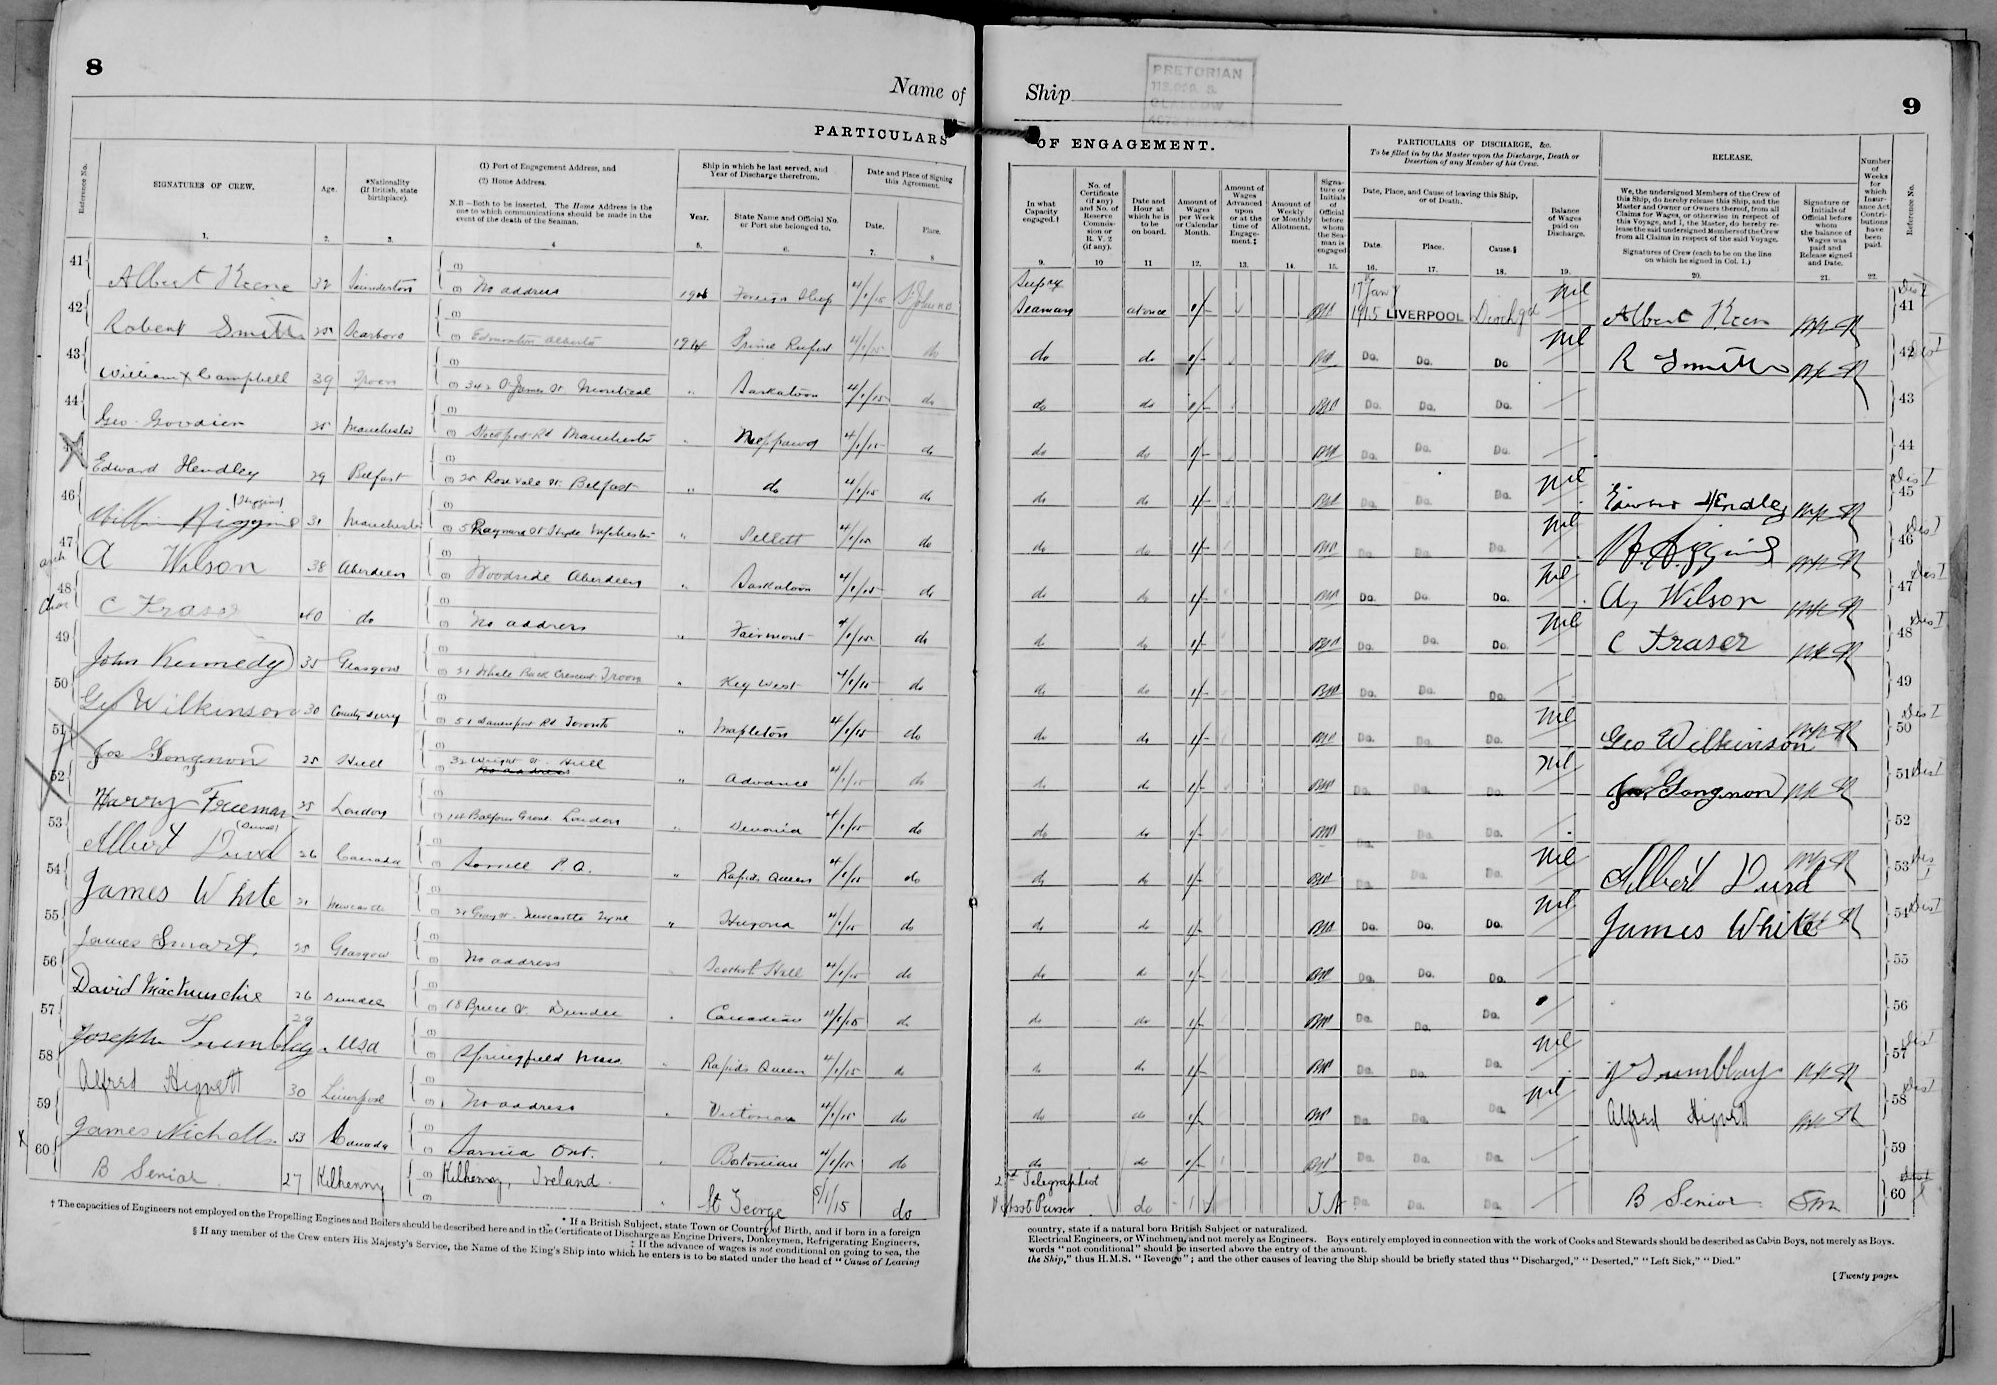 8
Name of
PARTICULARS
Reference No.
SIGNATURES OF CREW.
Age.
*Nationality (If British, state birthplace).
(1) Port of Engagement Address, and
(2) Home Address.
N.B—Both to be inserted. The Home Address is the one to which communications should be made in the event of the death of the Seaman.
Ship in which he last served, and Year of Discharge therefrom.
Year.
State Name and Official No. or Port she belonged to.
Date and Place of Signing this Agreement.
Date.
Place.
1. 2. 3. 4 5. 6. 7. 8
41 Albert Keene 32 Saunderton (1) (2) No address 1914 Foreign Ship 4/1/15 St Johns
42 Robert Smith 25 Scarboro (1) (2) Edmonton Alberta 1914 Prince Rupert 4/1/15 do
43 William X Campbell 39 Troon (1) (2) 342 St James St Montreal " Saskatoon 4/1/15 do
44 Geo. Goodier 25 Manchester (1) (2) Stockport Rd Manchester " Neppawa 4/1/15 do
45 Edward Hendley 29 Belfast (1) (2) 25 Rosevale St Belfast " do 4/1/15 do
46 William Higgins (Higgins) 31 Manchester (1) (2) Hyde " Pellett 4/1/15 do
47 A Wilson 38 Aberdeen (1) (2) Woodside Aberdeen " Saskatoon 4/1/15 do
48 C Fraser 40 do (1) (2) No address " Fairmont 4/1/15 do
49 John Kennedy 35 Glasgow (1) (2) 31 Crescent Troon " Key West 4/1/15 do
50 Geo Wilkinson 30 County Derry (1) (2) 51 Davenport Rd Toronto " Mapleton 4/1/15 do
51 Jos Gongnon 25 Hull (1) 32 Wright St. Hull (2) No address " Advance 4/1/15 do
52 Harry Freeman 25 London (1) (2) 14 Balfour Grove London " Devonia 4/1/15 do
53 Albert Duval (Duval) 26 Canada (1) (2) Sorrell P.Q. " Rapids Queen 4/1/15 do
54 James White 21 Newcastle (1) (2) Newcastle Tyne " Hurona 4/1/15 do
55 James Smart. 25 Glasgow (1) (2) No address Scottish Hell 4/1/15 do
56 David 26 Dundee (1) (2) 18 Bruce St Dundee Canadian 4/1/15 do
57 Joseph Trumblay 29 USA (1) (2) Springfield Mass Rapids Queen 4/1/15 do
58 Alfred Hignett 30 Liverpool (1) (2) No address Victorian 4/1/15 do
59 James Nicholls 33 Canada (1) (2) Sarnia Ont. Bostonian 4/1/15 do
60 B Senior 27 Kilkenny (1) Kilkenny, Ireland. (2) St George 5/1/15 do
* If a British Subject, state Town or Country of Birth, and if born in a foreign
† The capacities of Engineers not employed on the Propelling Engines and Boilers should be described here and in the Certificate of Discharge as Engine Drivers, Donkeymen, Refrigerating Engineers,
‡ If the advance of wages is not conditional on going to sea, the
§ If any member of the Crew enters His Majesty's Service, the Name of the King's Ship into which he enters is to be stated under the head of "Cause of Leaving
Ship
PRETORIAN
GLASGOW
9
OF ENGAGEMENT.
In what Capacity engaged.†
No. of Certificate (if any) and No. of Reserve Commission or R. V. 2 (if any).
Date and Hour at which he is to be on board.
Amount of Wages per Week or Calendar Month.
Amount of Wages Advanced upon or at the time of Engagement.‡
Amount of Weekly or Monthly Allotment.
Signature or Initials of Official before whom the Seaman is engaged
PARTICULARS OF DISCHARGE, &c.
To be filled in by the Master upon the Discharge, Death or Desertion of any Member of his Crew.
Date, Place, and Cause of leaving this Ship, or of Death.
Date.
Place.
Cause.§
Balance of Wages paid on Discharge.
RELEASE.
We, the undersigned Members of the Crew of this Ship, do hereby release this Ship, and the Master and Owner or Owners thereof, from all Claims for Wages, or otherwise in respect of this Voyage, and I, the Master, do hereby release the said undersigned Members of the Crew from all Claims in respect of the said Voyage.
Signatures of Crew (each to be on the line on which he signed in Col. 1.)
Signature or Initials of Official before whom the balance of Wages was paid and Release signed and Date.
Number of Weeks for which Insurance Act Contributions have been paid.
Reference No.
9. 10 11 12. 13. 14. 15. 16. 17. 18. 19. 20. 21. 22.
Supy Seaman at once 1/- 17 Jany 1915 LIVERPOOL Dischgd Nil Albert Keen 41
do do 1/- Do. Do. Do Nil R Smith 42
do do 1/- Do. Do. Do. 43
do do 1/- Do. Do. Do. 44
do do 1/- Do. Do. Do. Nil Edward Hendley 45
do do 1/- Do. Do. Do. Nil W. Higgins 46
do do 1/- Do. Do. Do. Nil A, Wilson 47
do do 1/- Do. Do. Do. Nil C Fraser 48
do do 1/- Do. Do. Do. 49
do do 1/- Do. Do. Do. Nil Geo Wilkinson 50
do do 1/- Do. Do. Do. Nil Jos Gongnon 51
do do 1/- Do. Do. Do. 52
do do 1/- Do. Do. Do. Nil Albert Duval 53
do do 1/- Do. Do. Do. Nil James White 54
do do 1/- Do. Do. Do. 55
do do 1/- Do. Do. Do. 56
do do 1/- Do. Do. Do. Nil J Trumblay 57
do do 1/- Do. Do. Do. Nil Alfred Hignett 58
do do 1/- Do. Do. Do. 59
2nd Telegraphist & Asst Purser do 1/- Do. Do. Do. B Senior 60
country, state if a natural born British Subject or naturalized.
Electrical Engineers, or Winchmen, and not merely as Engineers. Boys entirely employed in connection with the work of Cooks and Stewards should be described as Cabin Boys, not merely as Boys.
words "not conditional" should be inserted above the entry of the amount.
the Ship," thus H.M.S. "Revenge"; and the other causes of leaving the Ship should be briefly stated thus "Discharged," "Deserted," "Left Sick," "Died."
[Twenty pages.